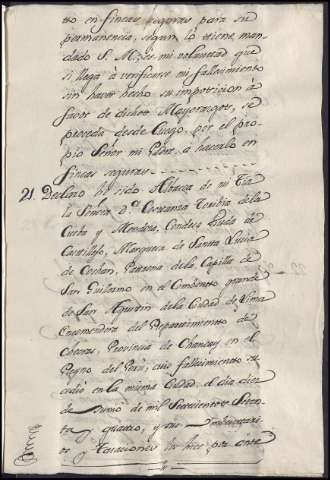 to en fincas seguras para su
permanencia, segun lo tiene man-
dado S. M. es mi voluntad que
si llega à verificarse mi fallecimiento
sin haver hecho su imposicion à
favor de dichos Mayorazgos, se
proceda desde luego, por el pro-
pio Señor mi Padre à hacerlo en
fincas seguras
21. Declaro he sido Albacea de mi Tia
la Señora D.ª Constanza Toribia de la
Cueba y Mendoza, Condesa Viuda de
Castillejo, Marquesa de Santa Lucia
de Cochan, Patrona de la Capilla de
San Guillermo en el Combento grande
de San Agustin de la Ciudad de Lima
Encomendera del Repartimiento de
Checras, Provincia de Chancay en el
Reyno del Perú; cuio fallecimiento su-
cedió en la misma Ciudad, el dia diez
de Junio de mil Setecientos Seten-
ta y quatro, y sus Imbentarios
y Tasaciones se hizo por ante